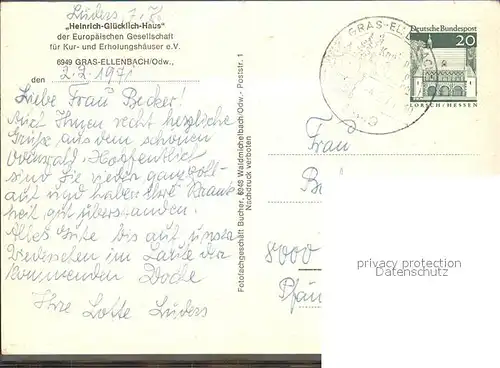 Lüders, z. Z.
„Heinrich-Glücklich-Haus"
der Europäischen Gesellschaft
für Kur- und Erholungshäuser e.V.
6949 GRAS-ELLENBACH/Odw.,
den 2.7.1971
Liebe Frau Becker!
Auch Ihnen recht herzliche
Grüße aus dem schönen
Odenwald. Hoffentlich
sind Sie wieder ganz
auf und haben Ihre Krank-
heit gut überstanden.
Alles Gute bis auf unser
Wiedersehen im Laufe der
kommenden Woche
Ihre Lotte Lüders
Fotofachgeschäft Bucher, 6948 Waldmichelbach/Odw. - Poststr. 1
Nachdruck verboten
GRAS-ELLENBACH
Deutsche Bundespost
20
LORSCH/HESSEN
Frau
8000
privacy protection
Datenschutz